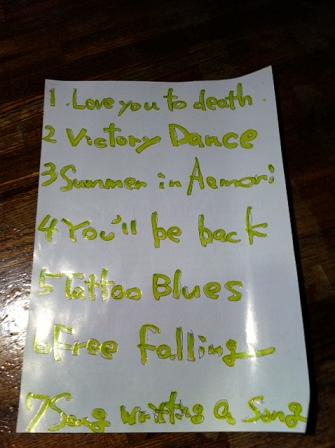 1. Love you to death.
2 Victory Dance
3 Summer in Aemori
4 You'll be back
5 Tattoo Blues
6 Free falling
7 Song writing a Song